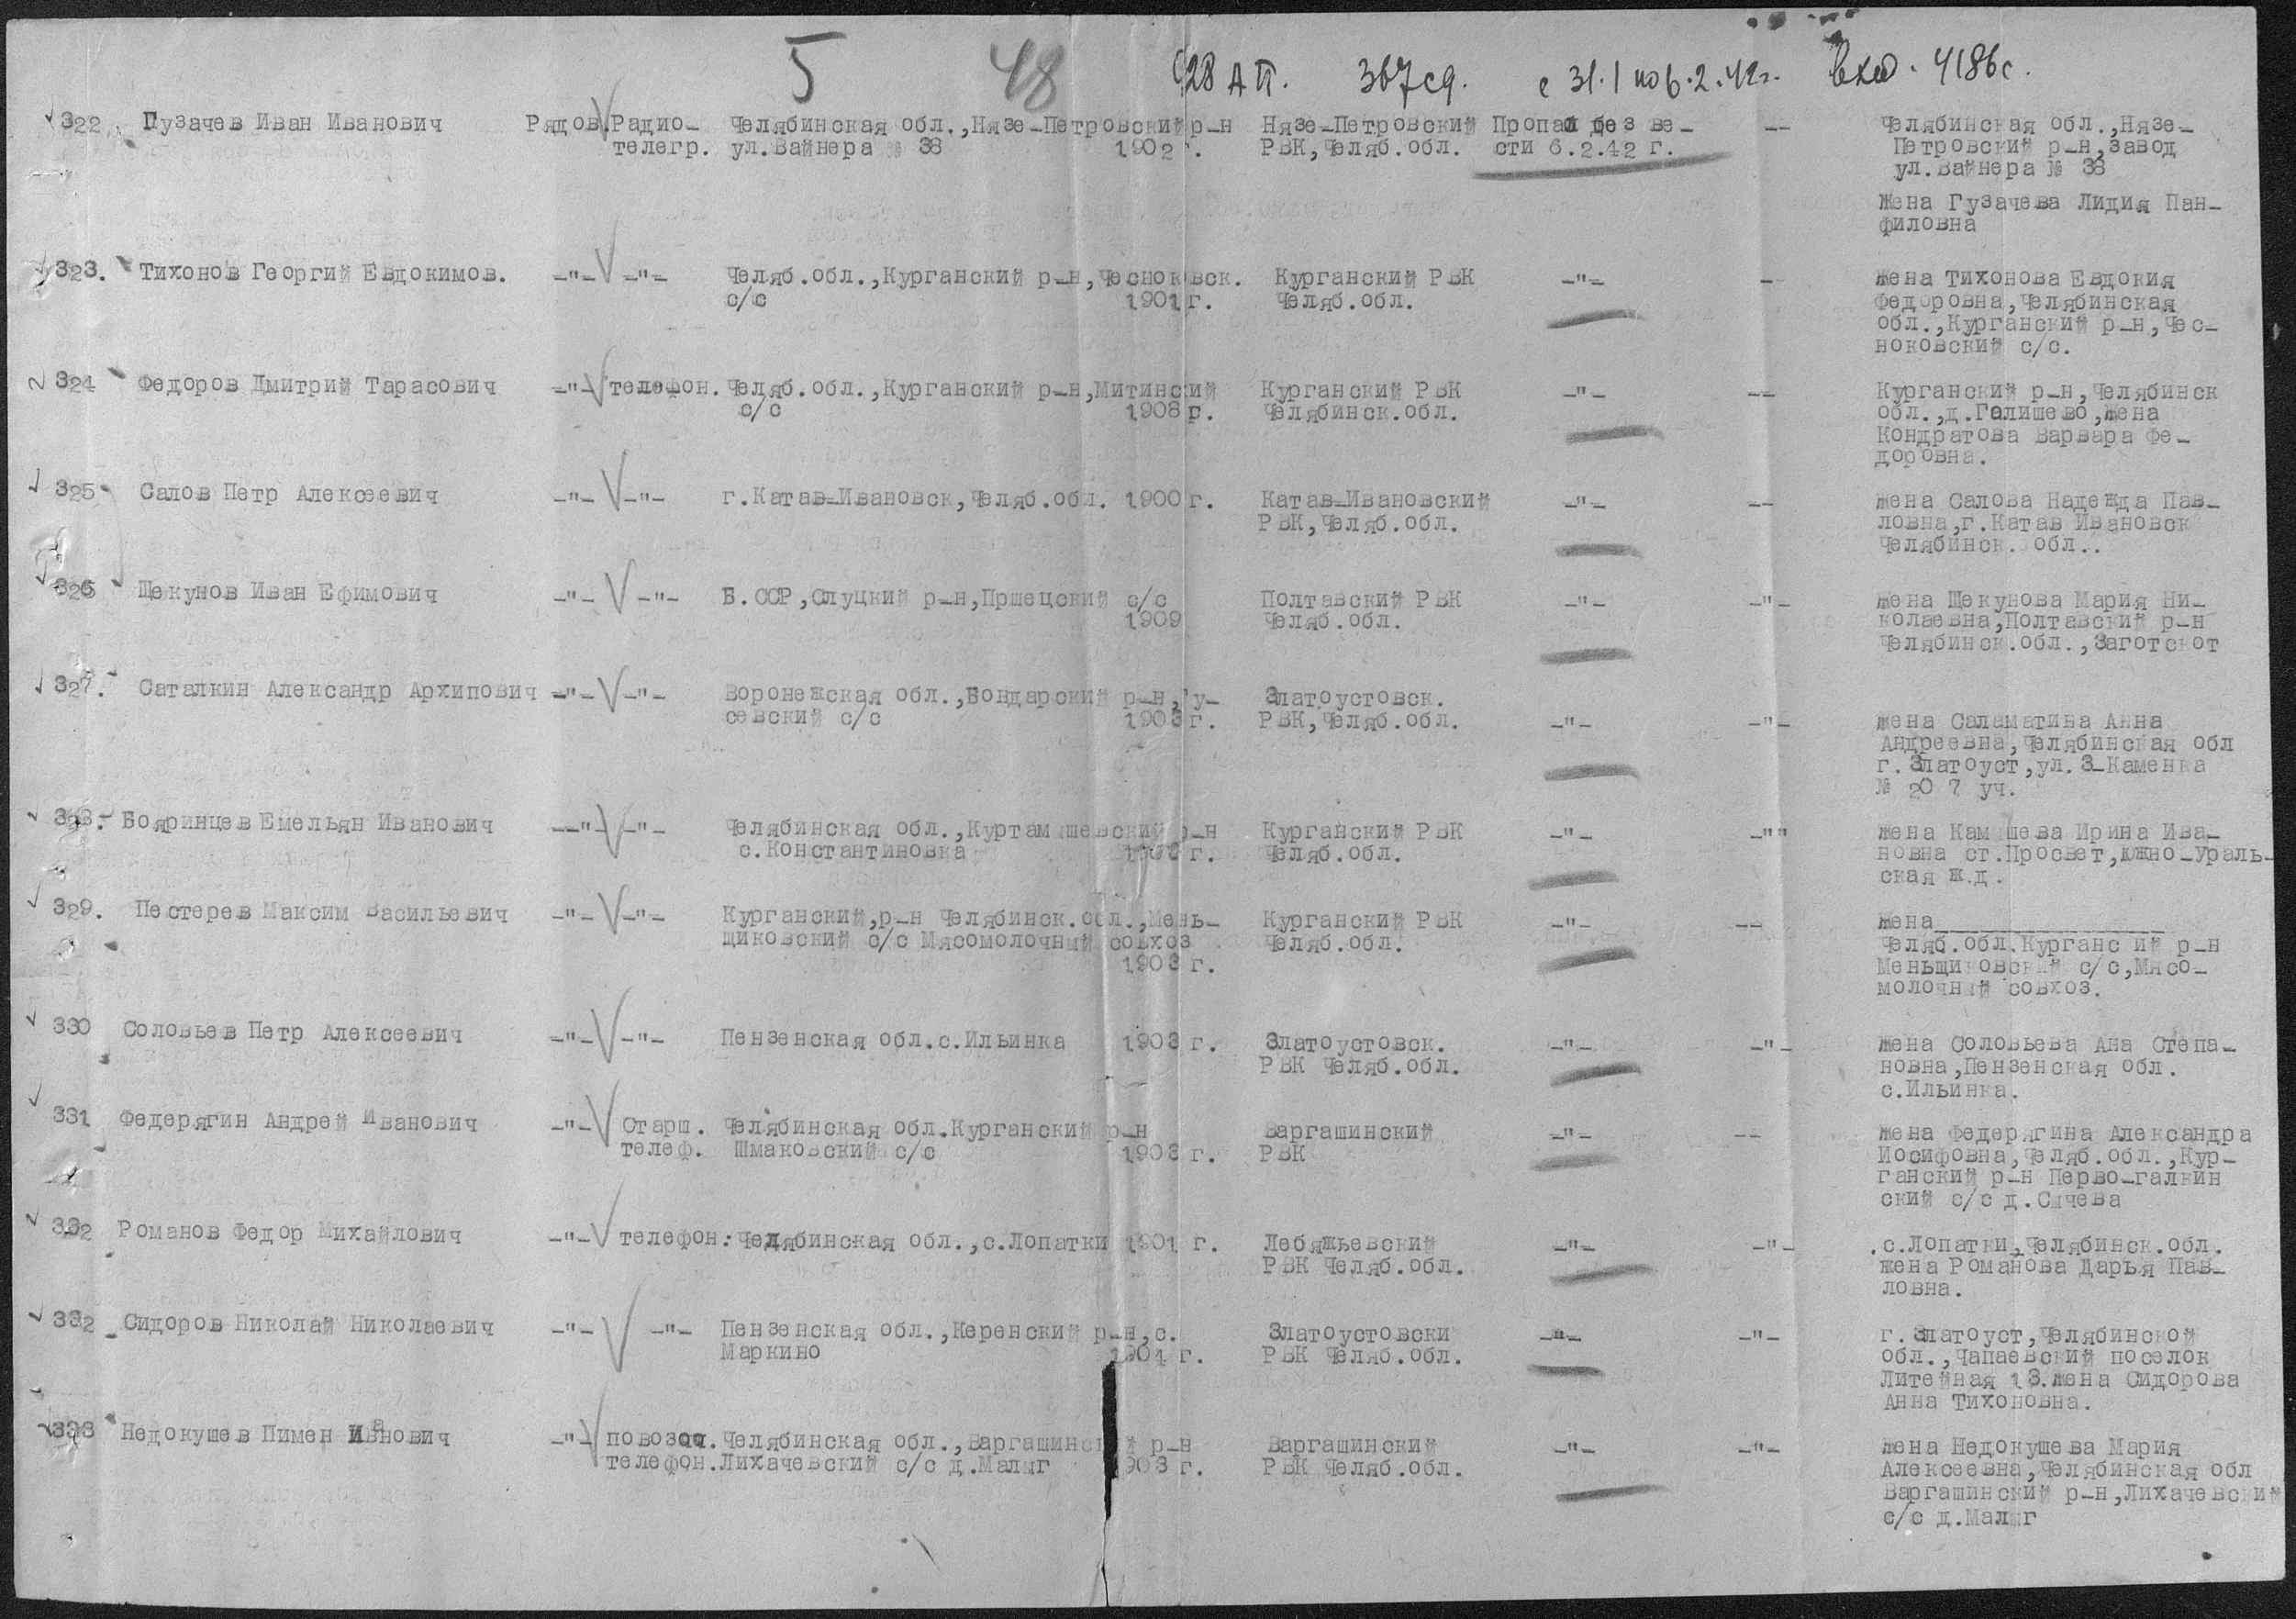 5 48 928 АП. 367 сд. с 31.1 по 6.2.42г. вход. 4186с.
322. Пузачев Иван Иванович Рядов. Радио- Челябинская обл.,Нязе-Петровский р-н Нязе-Петровский Пропал без ве- -- Челябинская обл.,Нязе-
телегр. ул.Вайнера № 38 1902 г. РВК,Челяб.обл. сти 6.2.42 г. Петровский р-н,завод
ул.Вайнера № 38
Жена Гузачева Лидия Пан-
филовна
323. Тихонов Георгий Евдокимов. -"- -"- Челяб.обл.,Курганский р-н,Чесноковск. Курганский РВК -"- - жена Тихонова Евдокия
с/с 1901 г. Челяб.обл. Федоровна,Челябинская
обл.,Курганский р-н,Чес-
ноковский с/с.
324 Федоров Дмитрий Тарасович -"- телефон. Челяб.обл.,Курганский р-н,Митинский Курганский РВК -"- -- Курганский р-н,Челябинск
с/с 1908 г. Челябинск.обл. обл.,д.Галишево,жена
Кондратова Варвара Фе-
доровна.
325 Салов Петр Алексеевич -"- -"- г.Катав-Ивановск,Челяб.обл. 1900 г. Катав-Ивановский -"- -- жена Салова Надежда Пав-
РВК,Челяб.обл. ловна,г.Катав Ивановск
Челябинск. обл..
326 Щекунов Иван Ефимович -"- -"- Б.ССР,Слуцкий р-н,Пршецский с/с Полтавский РВК -"- -"- жена Щекунова Мария Ни-
1909 Челяб.обл. колаевна,Полтавский р-н
Челябинск.обл.,Заготскот
327. Саталкин Александр Архипович -"- -"- Воронежская обл.,Бондарский р-н,Гу- Златоустовск.
севский с/с 1903 г. РВК,Челяб.обл. -"- -"- жена Саламатина Анна
Андреевна,Челябинская обл
г.Златоуст,ул.3-Каменка
№ 20 7 уч.
328. Бояринцев Емельян Иванович --"- -"- Челябинская обл.,Куртамышевский р-н Курганский РВК -"- -"" жена Камышева Ирина Ива-
с.Константиновка г. Челяб.обл. новна ст.Просвет,южно-Ураль-
ская ж.д.
329. Пестерев Максим Васильевич -"- -"- Курганский,р-н Челябинск.обл.,Мень- Курганский РВК -"- -- жена
щиковский с/с Мясомолочный совхоз Челяб.обл. Челяб.обл.Курганс ий р-н
1903 г. Меньщиковский с/с,Мясо-
молочный совхоз.
330 Соловьев Петр Алексеевич -"- -"- Пензенская обл.с.Ильинка 1903 г. Златоустовск. -"- -"- жена Соловьева Ана Степа-
РВК Челяб.обл. новна,Пензенская обл.
с.Ильинка.
331 Федерягин Андрей Иванович -"- Старш. Челябинская обл.Курганский р-н Варгашинский -"- -- жена Федерягина Александра
телеф. Шмаковский с/с 1903 г. РВК Иосифовна,Челяб.обл.,Кур-
ганский р-н Перво-галкин
ский с/с д.Сычева
332 Романов Федор Михайлович -"- телефон. Челябинская обл.,с.Лопатки 1901 г. Лебяжьевский -"- -"- .с.Лопатки,Челябинск.обл.
РВК Челяб.обл. жена Романова Дарья Пав-
ловна.
332 Сидоров Николай Николаевич -"- -"- Пензенская обл.,Керенский р-н,с. Златоустовски -"- -"- г.Златоуст,Челябинской
Маркино 1904 г. РВК Челяб.обл. обл.,Чапаевский поселок
Литейная 13.жена Сидорова
Анна Тихоновна.
333 Недокушев Пимен Иванович -"- повозоч. Челябинская обл.,Варгашинский р-н Варгашинский -"- -"- жена Недокушева Мария
телефон. Лихачевский с/с д.Малыг 1903 г. РВК Челяб.обл. Алексеевна,Челябинская обл
Варгашинский р-н,Лихачевский
с/с д.Малыг